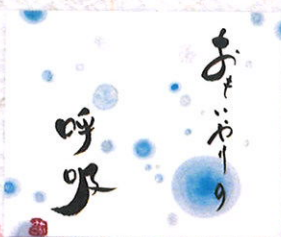 おもいやりの
呼吸